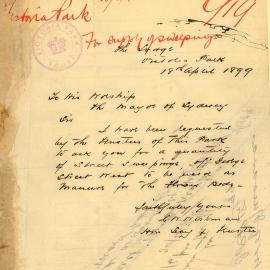 Victoria Park
919
For supply of sweepings
The Lodge
Victoria Park
18th April 1899
To His Worship
The Mayor of Sydney
Sir
I have been requested
by the Trustees of this Park
to ask you for a quantity
of street sweepings off George
Street West to be used as
Manure for the Flower Beds.
Faithfully Yours
Hon Secy & Trustee